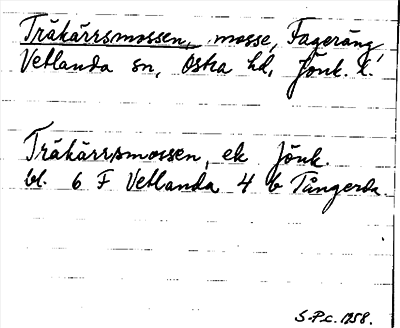 Träkärrsmossen, mosse, Fageräng,
Vetlanda sn, Östra hd, Jönk. l.
Träkärrsmossen, ek Jönk.
bl. 6 F Vetlanda 4 b Tångerda
S.P.c. 1958.